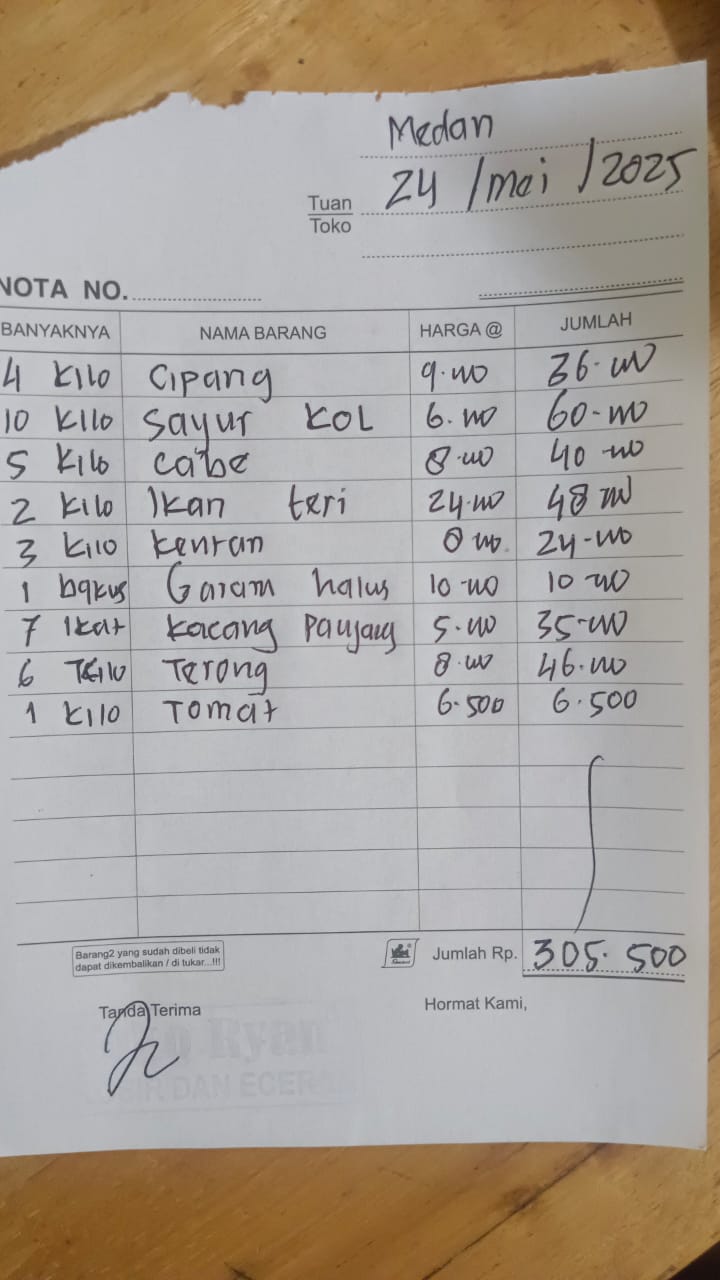 Medan
24 / mei / 2025
Tuan
Toko
NOTA NO.
BANYAKNYA NAMA BARANG HARGA @ JUMLAH
4 Kilo Cipang 9.000 36.000
10 Kilo Sayur KOL 6.000 60-000
5 Kilo cabe 8.000 40-000
2 Kilo Ikan teri 24.000 48 000
3 Kilo Kentan 8 000. 24-000
1 bqkus Garam halus 10-000 10-000
7 Ikat Kacang Panjang 5.000 35-000
6 Kilo Terong 8.000 46.000
1 Kilo Tomat 6.500 6.500
Barang2 yang sudah dibeli tidak
dapat dikembalikan / di tukar...!!!
Jumlah Rp. 305.500
Tanda Terima Hormat Kami,
Ryan
DAN ECERAN